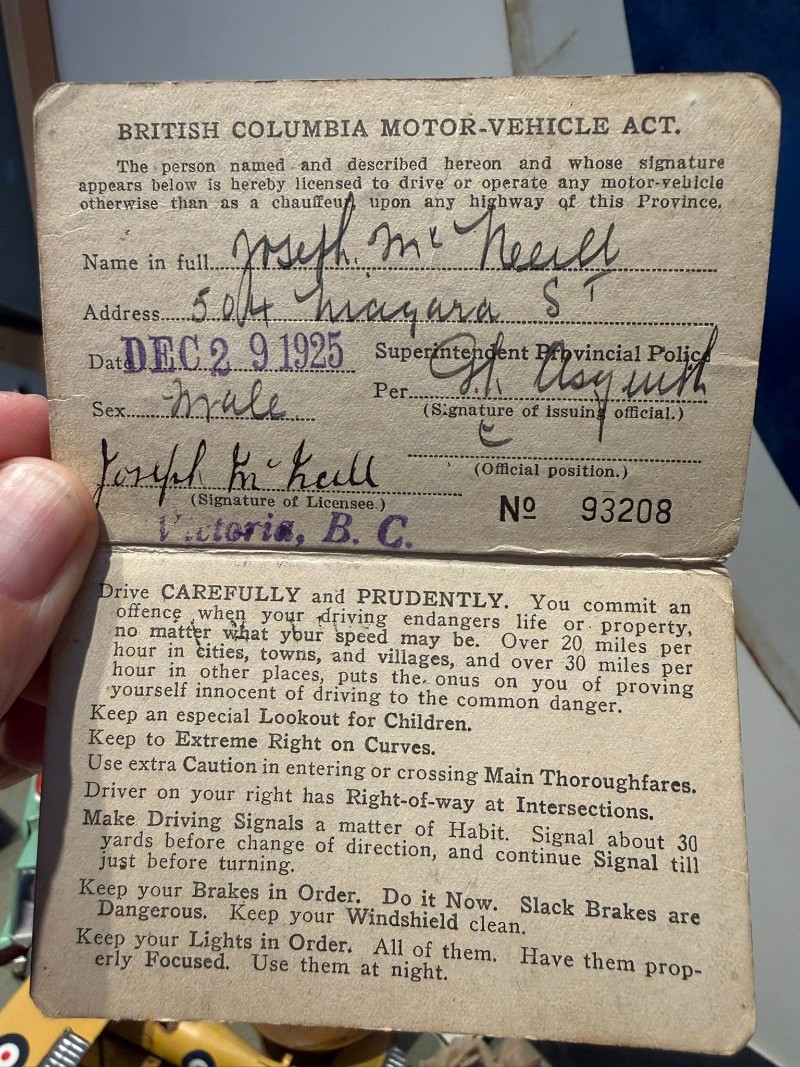 BRITISH COLUMBIA MOTOR-VEHICLE ACT.
The person named and described hereon and whose signature
appears below is hereby licensed to drive or operate any motor-vehicle
otherwise than as a chauffeur upon any highway of this Province.
Name in full Joseph. Mc Neill
Address 504 Niagara ST
Date DEC 29 1925 Superintendent Provincial Police
Sex Male Per Asquith
(Signature of issuing official.)
(Official position.)
Joseph McNeill
(Signature of Licensee.)
Victoria, B. C. No 93208
Drive CAREFULLY and PRUDENTLY. You commit an
offence when your driving endangers life or property,
no matter what your speed may be. Over 20 miles per
hour in cities, towns, and villages, and over 30 miles per
hour in other places, puts the onus on you of proving
yourself innocent of driving to the common danger.
Keep an especial Lookout for Children.
Keep to Extreme Right on Curves.
Use extra Caution in entering or crossing Main Thoroughfares.
Driver on your right has Right-of-way at Intersections.
Make Driving Signals a matter of Habit. Signal about 30
yards before change of direction, and continue Signal till
just before turning.
Keep your Brakes in Order. Do it Now. Slack Brakes are
Dangerous. Keep your Windshield clean.
Keep your Lights in Order. All of them. Have them prop-
erly Focused. Use them at night.